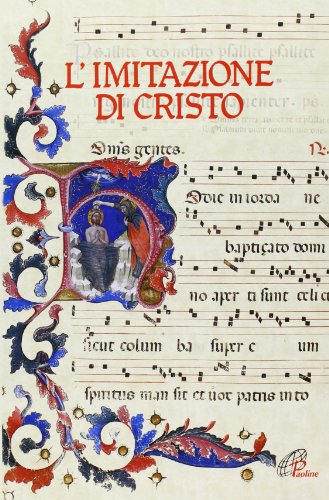 Psallite deo nostro psallite psallite
L'IMITAZIONE
DI CRISTO
Oms gentes.
odie in iorda ne
baptiçato domi
no aper ti sunt celi et
sicut colum ba super e um
spiritus man sit et vox patris into
Paoline